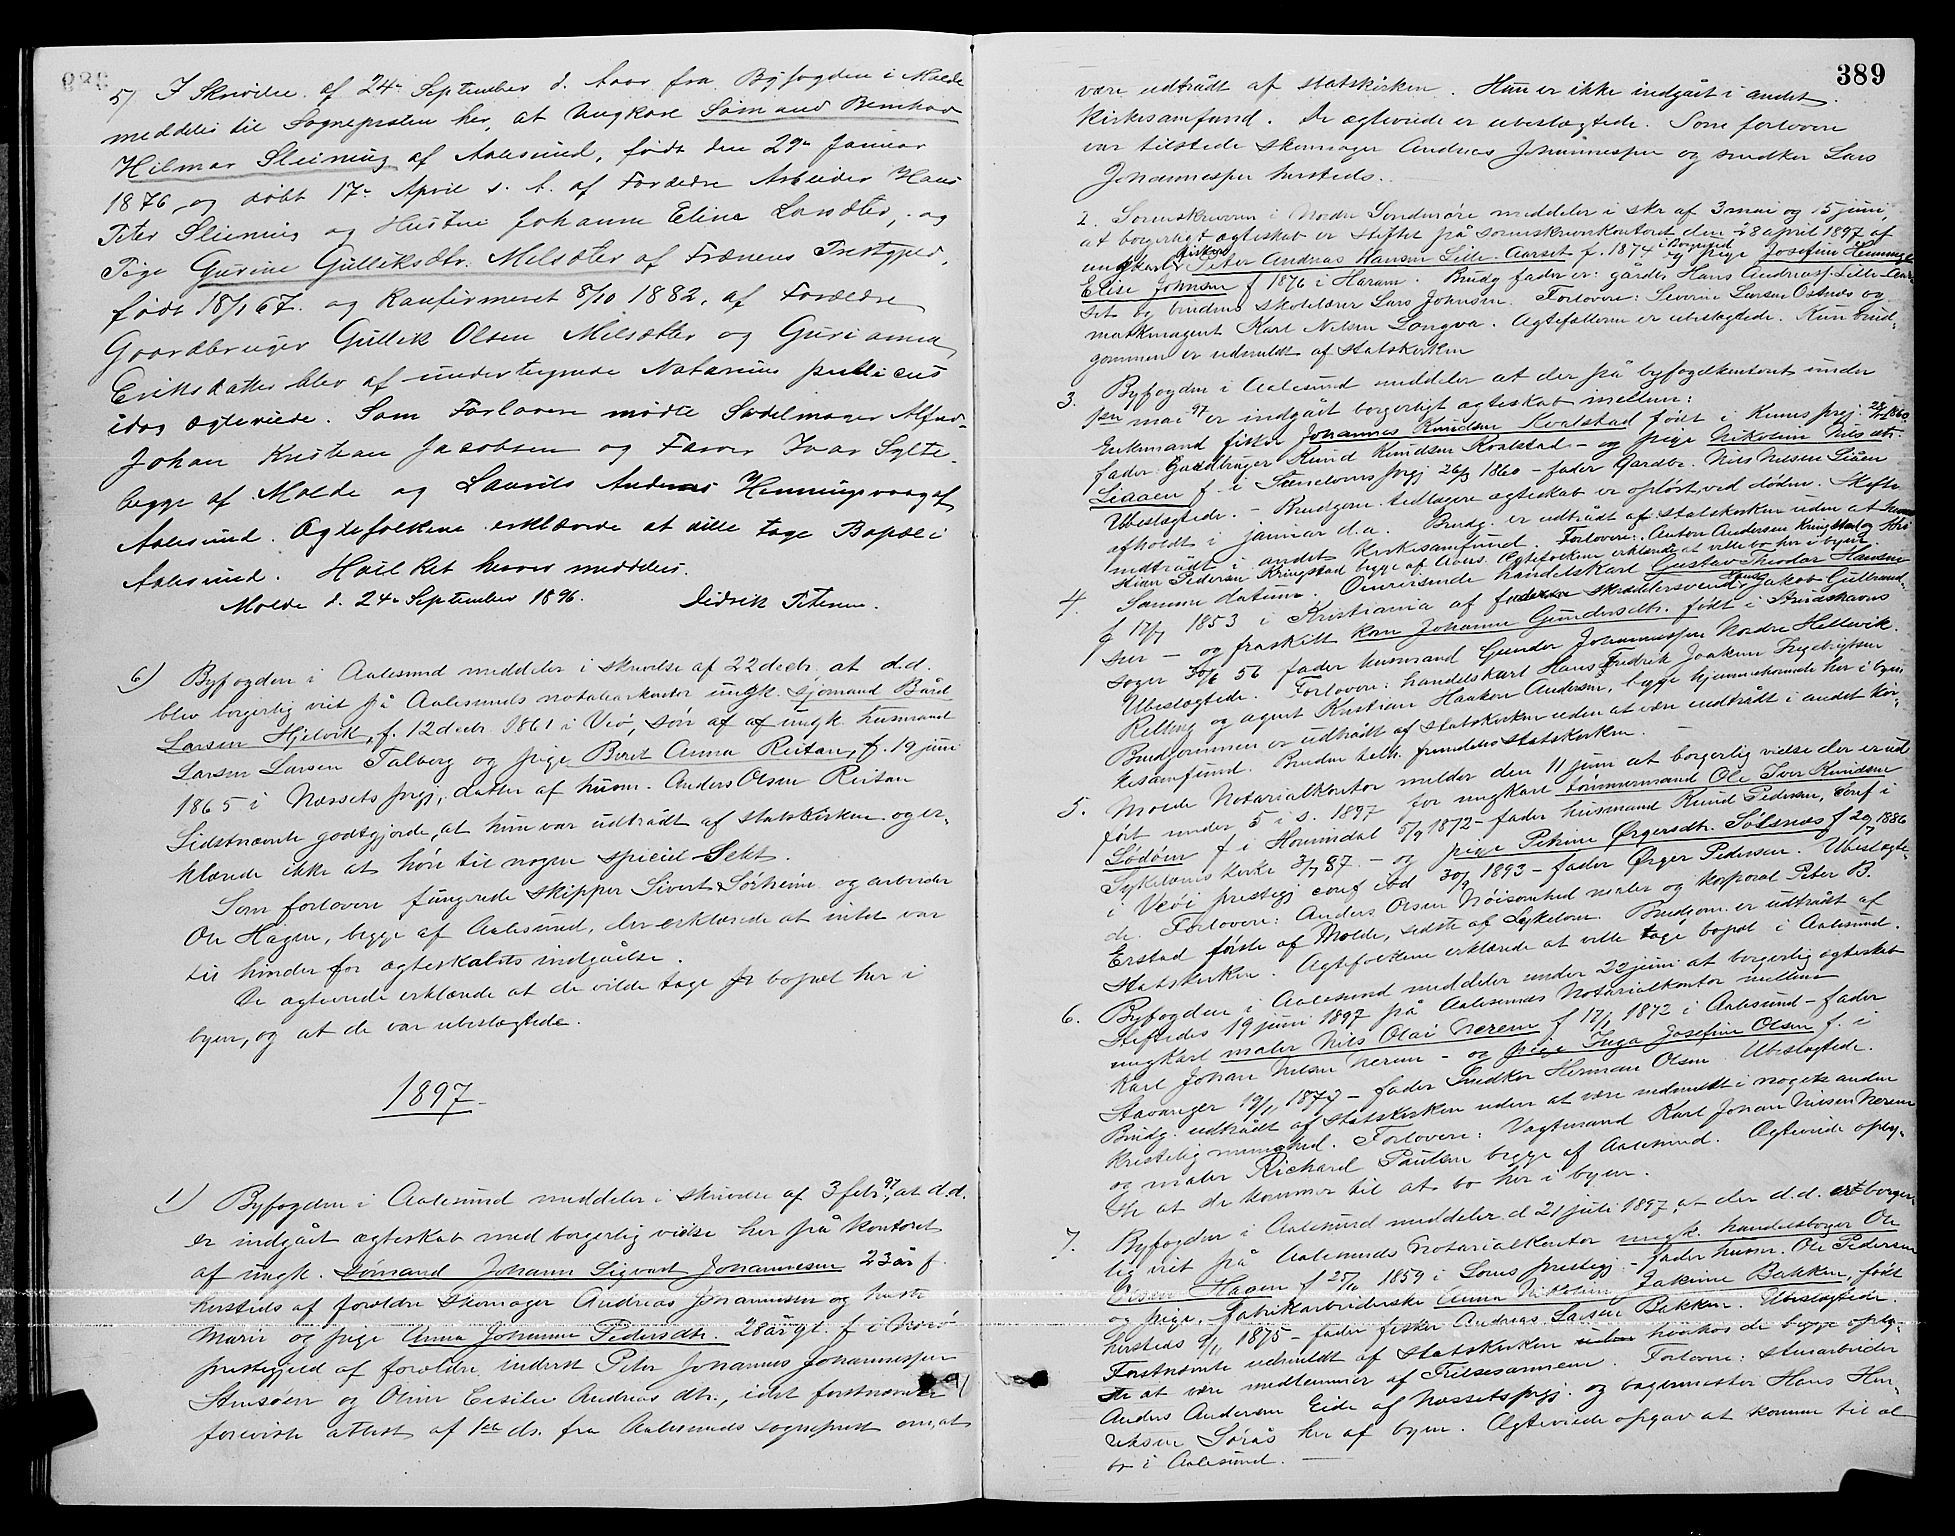 5) I Skrivelse af 24de September d. Aar fra Byfogden i Molde
meddeles til Sognepresten her, at Ungkarl Sømand Bernhard
Hilmar Sleining af Aalesund, født den 29de Januar
1876 og døbt 17de April s. A. af Forældre Arbeider Hans
Peter Sleining og Hustru Johanne Eline Larsdtr, og
Pige Gurine Gulliksdtr. Melsæter af Frænens Prestgjeld,
født 18/1 67. og konfirmeret 8/10 1882, af Forældre
Gaardbruger Gullik Olsen Melsæter og Guri anna
Eriksdatter blev af undertegnede Notarius publicus
idag ægteviede. Som Forlovere mødte Sadelmager Alfred
Johan Kristian Jacobsen og Farver Ivar Sylte
begge af Molde og Laurits Andreas Henningsvaag af
Aalesund. Ægtefolkene erklærede at ville tage Bopæl i
Aalesund. Hvilket herved meddeles.
Molde d. 24de September 1896. Didrik Petersen.
6) Byfogden i Aalesund meddeler i skrivelse af 22 decbr. at d.d.
blev borgerlig viet på Aalesunds notarialkontor ungk. sjømand Bård
Larsen Hjelvik, f. 12 decbr. 1861 i Veø, søn af af ungk. husmand
Larsen Larsen Talberg og pige Berit Anna Reitan, f. 19 juni
1865 i Næssets prgj, datter af husm. Anders Olsen Reitan
Sidstnævnte godtgjorde, at hun var udtrådt af statskirken og er-
klærede ikke at høre til nogen speciel Sekt.
Som forlovere fungerede skipper Sivert Sørheim og arbeider
Ole Hagen, begge af Aalesund, der erklærede at intet var
til hinder for ægteskabets indgåelse.
De ægteviede erklærede at de vilde tage bopæl her i
byen, og at de var ubeslægtede.
1897
1) Byfogden i Aalesund meddeler i skrivelse af 3 febr. 97, at d.d.
er indgået ægteskab med borgerlig vielse her på kontoret
af ungk. sømand Johann Sigvart Johannesen 23 år f.
hersteds af forældre skomager Andreas Johannesen og hustr
Marie og pige Anna Johanne Pedersdtr. 28 år gl. f. i
prestegjeld af forældre inderst Peter Johannes Johannessen
Stensøen og Oline Cesilie Andreasdtr., idet førstnævnte
foreviste attest af 1ste ds. fra Aalesunds sogneprest om, at
389
være udtrådt af statskirken. Hun er ikke indgået i andet
kirkesamfund. De ægteviede er ubeslægtede. Som forlovere
var tilstede skomager Andreas Johannessen og snedker Lars
Johannessen hersteds.
2. Sorenskriveren i Nordre Søndmøre meddeler i skr. af 3 mai og 15 juni,
at borgerligt ægteskab er stiftet på sorenskriverkontoret den 28 april 1897 af
ungkarl fisker Peter Andreas Hansen Lille-Aarset f. 1874 i Borgund og pige Josefine
Elise Johnsen f 1876 i Haram. Brudg fader er: gårdbr. Hans Andreas Lille-Aar-
set og brudens skolelærer Lars Johnsen. Forlovere: Severin Larsen Ostnes og
maskinagent Karl Nilsen Longva. Ægtefællerne er ubeslægtede. Kun brud-
gommen er udmeldt af statskirken
3. Byfogden i Aalesund meddeler at der på byfogdkontoret under
mai 97 er indgået borgerligt ægteskab mellem:
Enkemand fisker Johannes Knudsen Kvalstad født i Kinns prgj. 1860
fader Gaardbruger Knud Knudsen Kvalstad - og pige Nikoline Nilsdtr.
Liaaen f. i prgj 26/3 1860 - fader Gardbr. Nils Nilsen Liåen
Ubeslægtede. - Brudgom. tidligere ægteskab er opløst ved døden. Skifte
afholdt i januar d.a. Brudg. er udtrådt af statskirken uden at være
indtrådt i andet kirkesamfund. Forlovere: Anton Andersen Kringstad og Kri-
stian Pedersen Kringstad begge af Aalesund. Ægtefolkene erklærede at ville bo her i byen.
4. Samme datum. Omreisende handelskarl Gustav Theodor Hansen
f 17/7 1853 i Kristiania af fader skræddersvend Hans Jakob Gulbrand-
sen - og fraskilt kone Johanne Gundersdtr. født i
sogn 30/6 56 fader husmand Gunder Johannessen Nordre Hellevik.
Ubeslægtede. Forlovere: handelskarl Hans Fredrik Joakim Ingebrigtsen
Relling og agent Kristian Haaken Andersen, begge hjemmehørende her i byen
Brudgommen er udtrådt af statskirken uden at være indtrådt i andet kir-
kesamfund. Bruden tilh. fremdeles statskirken.
5. Molde Notarialkontor melder den 11 juni at borgerlig vielse der er ud
ført under 5 i s. 1897 for ungkarl tømmermand Ole Iver Knudsen
Lødøen f i Hornindal 5/9 1872 - fader husmand Knud Pedersen, conf i
Sykelvens kirke 3/7 87. - og pige Petrine Ørgersdtr. Sølsnes f 29/7 1886
i Veøi prestegj conf ibd 30/9 1893 - fader Ørger Pedersen. Ubeslægte-
de. Forlovere: Anders Olsen Nøisomhed maler og korporal Peter B.
Erstad første af Molde, sidste af Sykelven. Brudgom. er udtrådt af
Statskirken. Ægtefolkene erklærede at ville tage bopæl i Aalesund.
6. Byfogden i Aalesund meddeler under 22 juni at borgerlig ægteskab
stiftedes 19 juni 1897 på Aalesunds Notarialkontor mellem
ungkarl maler Nils Olai Nerem f 17/1 1872 i Aalesund - fader
Karl Johan Nilsen Nerem - og pige Inga Josefine Olsen f. i
Stavanger 19/11 1873 - fader Snedker Herman Olsen. Ubeslægtede.
Brudg. udtrådt af Statskirken uden at være indmeldt i noget andet
kristelig menighed. Forlovere: Vægtermand Karl Johan Nilsen Nerem
og maler Richard Paulsen begge af Aalesund. Ægteviede oply-
ste at de kommer til at bo her i byen.
7. Byfogden i Aalesund meddeler d 21 juli 1897, at der d.d. er borger-
lig viet på Aalesunds Notarialkontor ungk. handelsborger Ole
Olsen Hagen f 25/11 1859 i Loms prestegj. - fader husm. Ole Pedersen
og pige, fabrikarbeiderske Anna Nikoline Jakine Bakken, født
hersteds 6/11 1875 - fader fisker Andreas Larsen Bakken. Ubeslægtede.
Førstnævnte udmeldt af Statskirken hvorhos de begge oply-
ste at være medlemmer af Frelsesarmeen. Forlovere: stenarbeider
Anders Andersen Eide af Næssets prgj. og bagermester Hans Hen-
riksen Sørås her af byen. Ægteviede opgav at komme til at
bo i Aalesund.